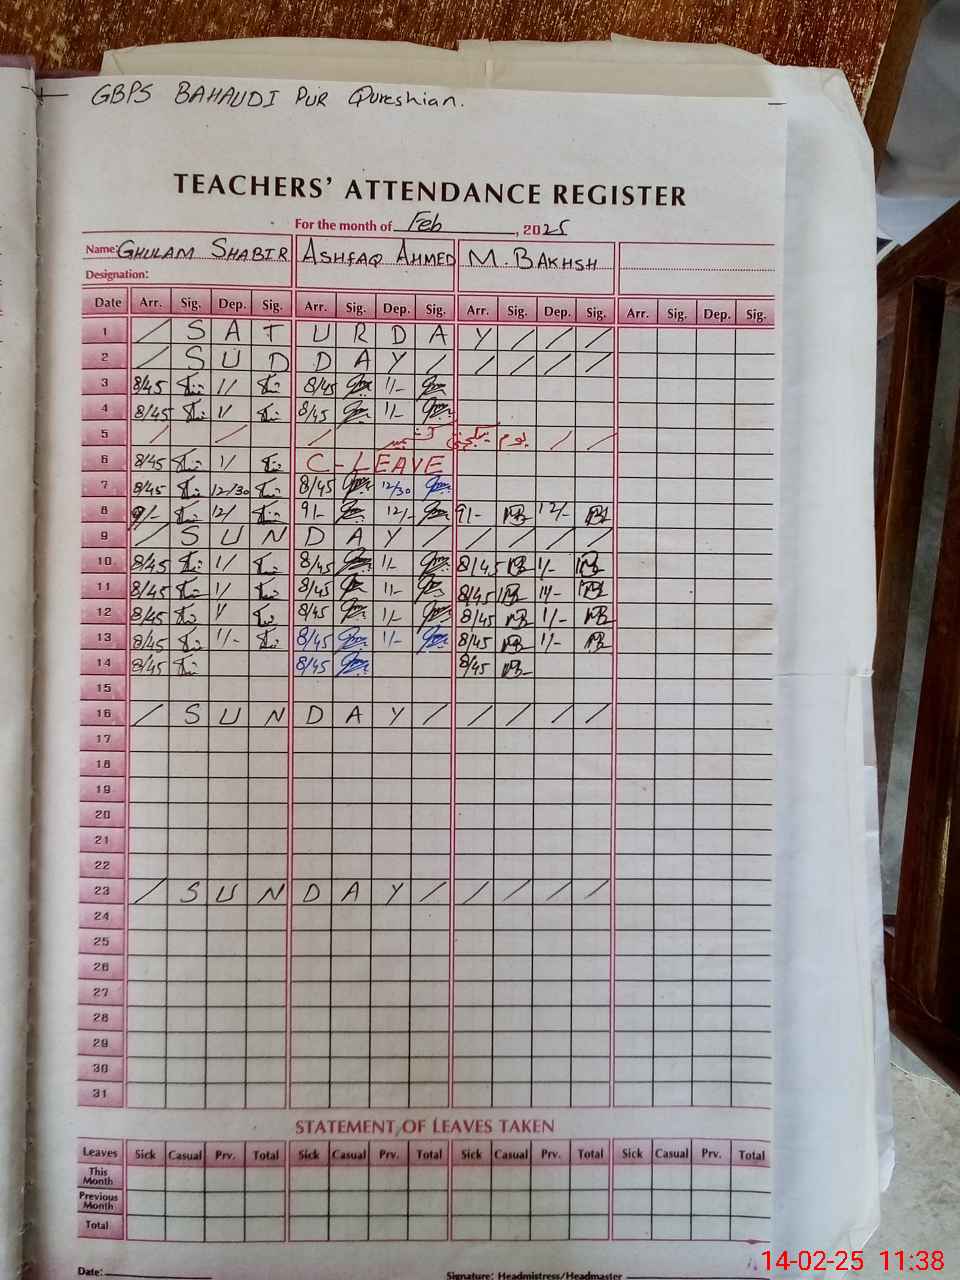 GBPS BAHAUDI PUR Qureshian.
TEACHERS' ATTENDANCE REGISTER
For the month of Feb, 2025
Name: GHULAM SHABIR ASHFAQ AHMED M. BAKHSH
Designation:
Date Arr. Sig. Dep. Sig. Arr. Sig. Dep. Sig. Arr. Sig. Dep. Sig. Arr. Sig. Dep. Sig.
1 / S A T U R D A Y / / /
2 / S U D D A Y / / / / /
3 8/45 1/ 8/45 1/-
4 8/45 1/ 8/45 1/-
5 / / / یوم یکجہتی کشمیر / /
6 8/45 1/ C-LEAVE
7 8/45 12/30 8/45 12/30
8 9/- 12/ 9/- 12/- 9/- MB 12/- MB
9 / S U N D A Y / / / / /
10 8/45 1/ 8/45 1/- 8/45 MB 1/- MB
11 8/45 1/ 8/45 1/- 8/45 MB 1/- MB
12 8/45 1/ 8/45 1/- 8/45 MB 1/- MB
13 8/45 1/- 8/45 1/- 8/45 MB 1/- MB
14 8/45 8/45 8/45 MB
15
16 / S U N D A Y / / / / /
17
18
19
20
21
22
23 / S U N D A Y / / / / /
24
25
26
27
28
29
30
31
STATEMENT OF LEAVES TAKEN
Leaves Sick Casual Prv. Total Sick Casual Prv. Total Sick Casual Prv. Total Sick Casual Prv. Total
This Month
Previous Month
Total
Date: Signature: Headmistress/Headmaster
14-02-25 11:38